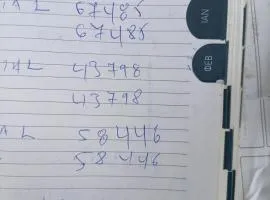 A L 67485
67485
I A L 43798
43798
A L 58446
58446
JAN
ФЕВ